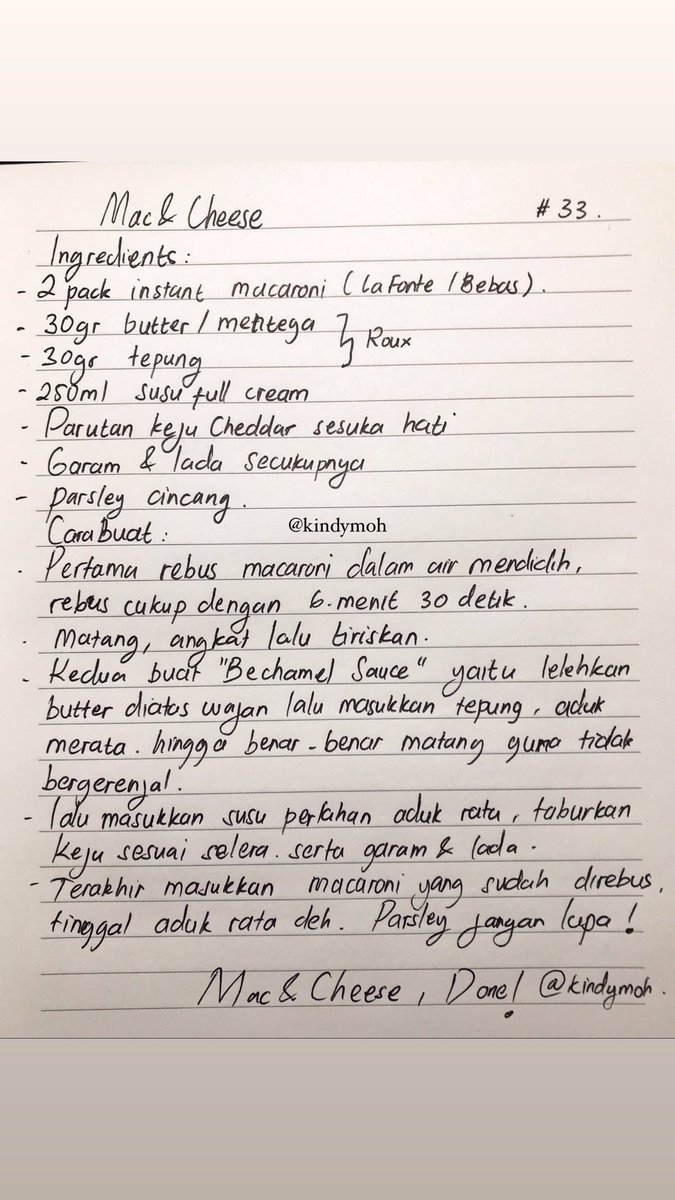 Mac & Cheese # 33.
Ingredients:
- 2 pack instant macaroni (La Fonte / Bebas).
- 30gr butter / mentega
Roux
- 30gr tepung
- 250ml susu full cream
- Parutan keju Cheddar sesuka hati
- Garam & lada secukupnya
- parsley cincang.
Cara Buat:
@kindymoh
- Pertama rebus macaroni dalam air mendidih,
rebus cukup dengan 6 menit 30 detik.
- Matang, angkat lalu tiriskan.
- Kedua buat "Bechamel Sauce" yaitu lelehkan
butter diatas wajan lalu masukkan tepung, aduk
merata. hingga benar-benar matang guna tidak
bergerenjal.
- lalu masukkan susu perlahan aduk rata, taburkan
keju sesuai selera. serta garam & lada.
- Terakhir masukkan macaroni yang sudah direbus,
tinggal aduk rata deh. Parsley jangan lupa!
Mac & Cheese, Done! @kindymoh.